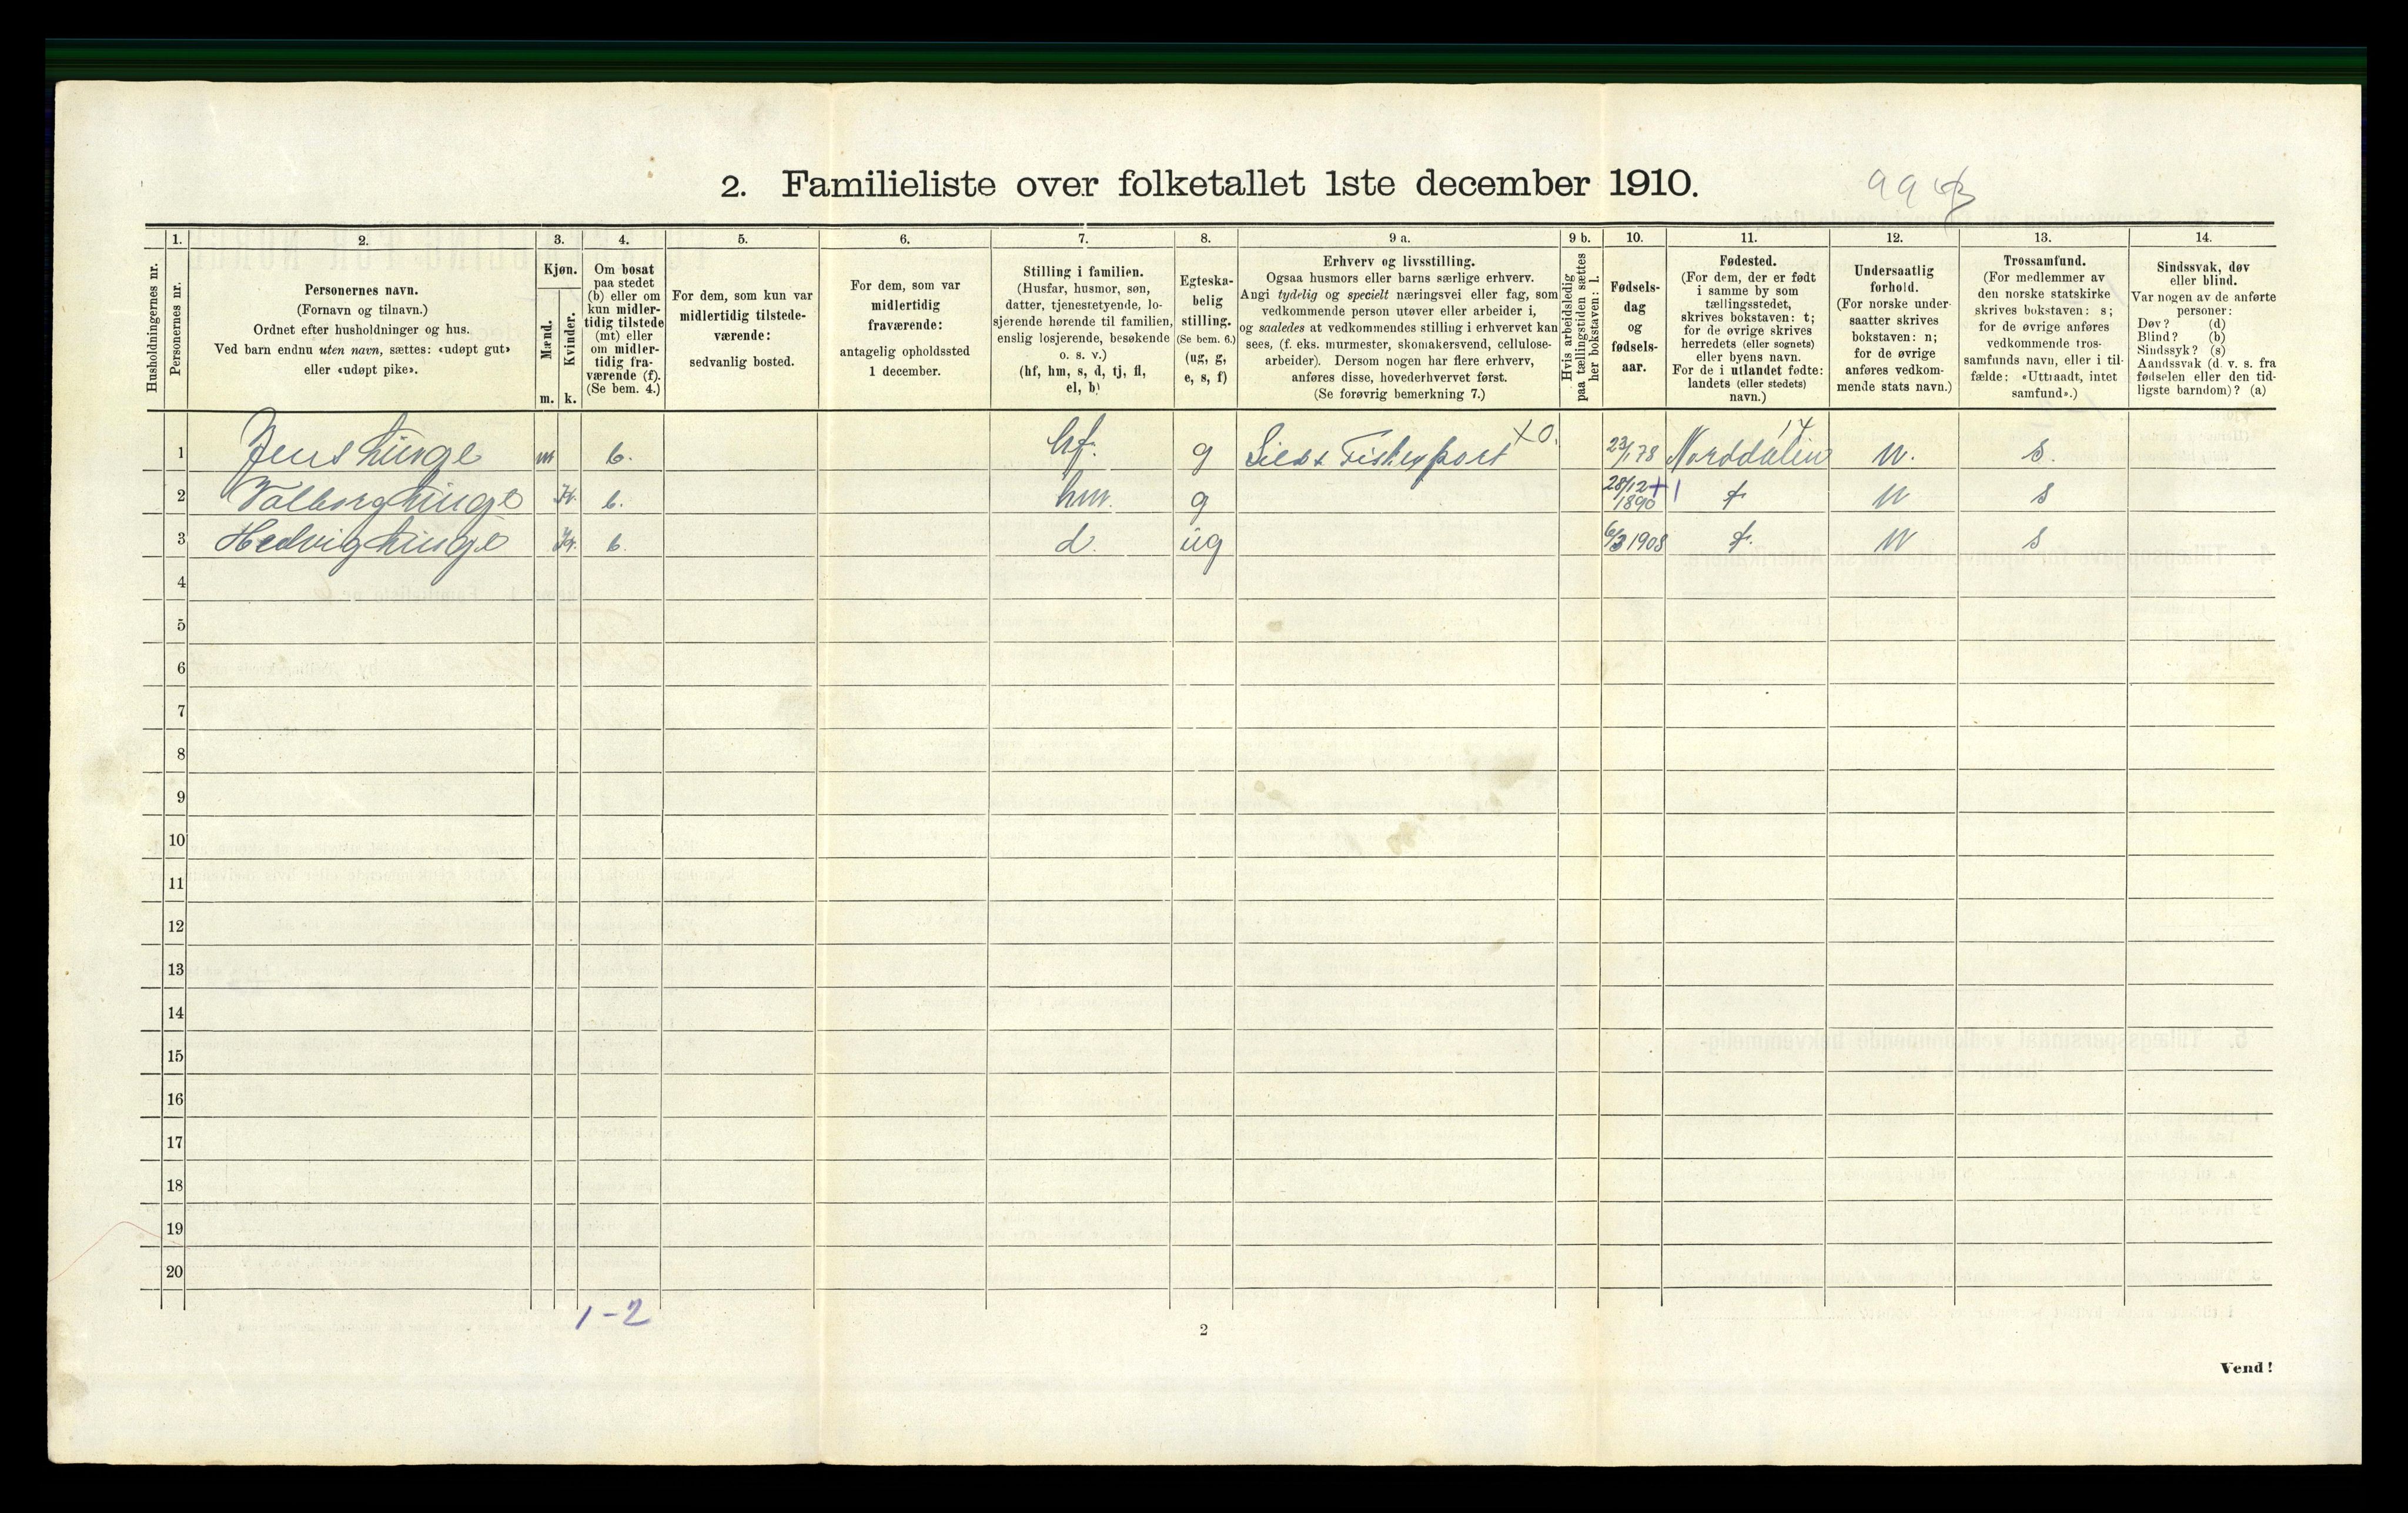 2. Familieliste over folketallet 1ste december 1910.
Husholdningernes nr.
1. Personernes nr.
2.
Personernes navn.
(Fornavn og tilnavn.)
Ordnet efter husholdninger og hus.
Ved barn endnu uten navn, sættes: «udøpt gut»
eller «udøpt pike».
3.
Kjøn.
Mænd. Kvinder.
m. k.
4.
Om bosat
paa stedet
(b) eller om
kun midler-
tidig tilstede
(mt) eller
om midler-
tidig fra-
værende (f).
(Se bem. 4.)
5.
For dem, som kun var
midlertidig tilstede-
værende:
sedvanlig bosted.
6.
For dem, som var
midlertidig
fraværende:
antagelig opholdssted
1 december.
7.
Stilling i familien.
(Husfar, husmor, søn,
datter, tjenestetyende, lo-
sjerende hørende til familien,
enslig losjerende, besøkende
o. s. v.)
(hf, hm, s, d, tj, fl,
el, b)
8.
Egteska-
belig
stilling.
(Se bem. 6.)
(ug, g,
e, s, f)
9 a.
Erhverv og livsstilling.
Ogsaa husmors eller barns særlige erhverv.
Angi tydelig og specielt næringsvei eller fag, som
vedkommende person utøver eller arbeider i,
og saaledes at vedkommendes stilling i erhvervet kan
sees, (f. eks. murmester, skomakersvend, cellulose-
arbeider). Dersom nogen har flere erhverv,
anføres disse, hovederhvervet først.
(Se forøvrig bemerkning 7.)
9 b.
Hvis arbeidsledig
paa tællingstiden sættes
her bokstaven: l.
10.
Fødsels-
dag
og
fødsels-
aar.
11.
Fødested.
(For dem, der er født
i samme by som
tællingsstedet,
skrives bokstaven: t;
for de øvrige skrives
herredets (eller sognets)
eller byens navn.
For de i utlandet fødte:
landets (eller stedets)
navn.)
12.
Undersaatlig
forhold.
(For norske under-
saatter skrives
bokstaven: n;
for de øvrige
anføres vedkom-
mende stats navn.)
13.
Trossamfund.
(For medlemmer av
den norske statskirke
skrives bokstaven: s;
for de øvrige anføres
vedkommende tros-
samfunds navn, eller i til-
fælde: «Uttraadt, intet
samfund».)
14.
Sindssvak, døv
eller blind.
Var nogen av de anførte
personer:
Døv? (d)
Blind? (b)
Sindssyk? (s)
Aandssvak (d. v. s. fra
fødselen eller den tid-
ligste barndom)? (a)
1 Jens Linge m b. hf. g Sild & Fiskexport X0. 23/1 78 Norddalen 17 n. s.
2 Valborg Linge k. b. hm. g 28/12 1890 t n s
3 Hedvig Linge k. b. d. ug 6/3 1908 t. n s
4
5
6
7
8
9
10
11
12
13
14
15
16
17
18
19
20
1-2
2
Vend!